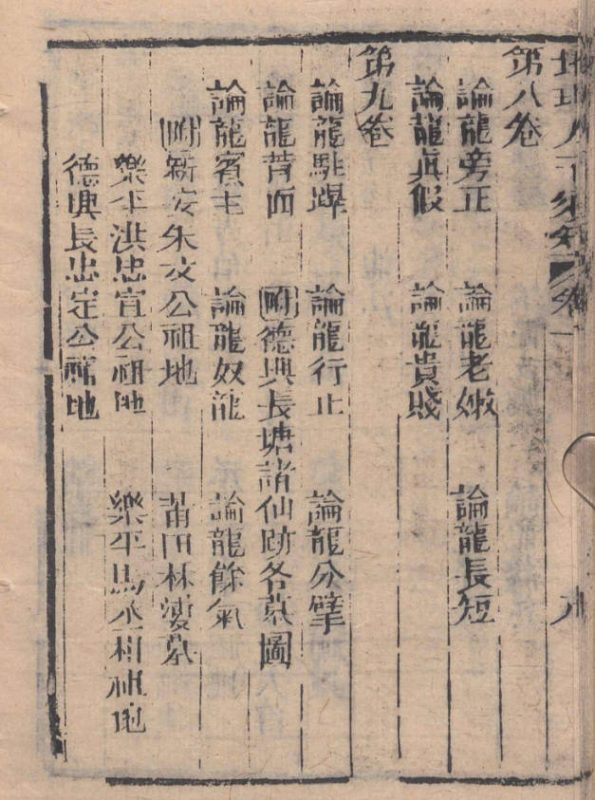 地理人子須知 卷一
第八卷
論龍旁正 論龍老嫩 論龍長短
論龍真假 論龍貴賤
第九卷
論龍駐蹕 論龍行止 論龍分擘
論龍背面 附德興長塘諸仙跡各墓圖
論龍賓主 論龍奴龍 論龍餘氣
附新安朱文公祖地 莆田林墓
樂平洪忠宣公祖地 樂平馬丞相祖地
德興長忠定公祖地